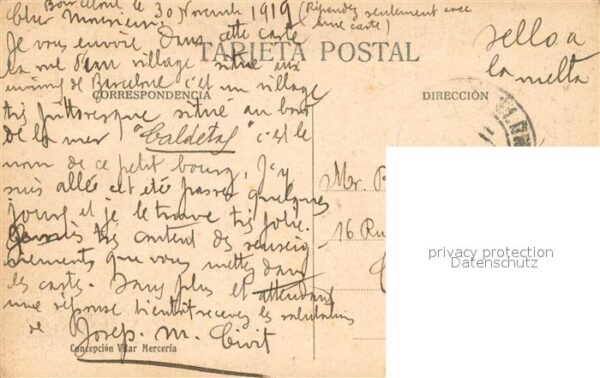 Barcelone le 30 Novembre 1919 (Répondez seulement avec
une carte)
Cher Monsieur:
Je vous envoie dans cette carte
la vue d'un village situé aux
environs de Barcelone c'et un village
très pittoresque situé au bord
de la mer "Caldetas" c'est le
nom de ce petit bourg, j'y
suis allée cet été passer quelques
jours et je le trouve très jolie.
très content des renseig
nements que vous mettez dans
les cartes. Sans plus et attendant
une réponse bientôt recevez les salutations
de Josep. M. Civit
TARJETA POSTAL
CORRESPONDENCIA
DIRECCIÓN
sello a
la
Mr. P
16 Ru
privacy protection
Datenschutz
Concepción Vilar Mercería